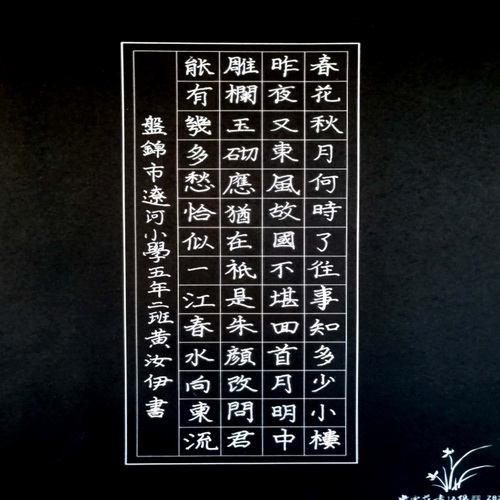 春花秋月何時了往事知多少小樓
昨夜又東風故國不堪回首月明中
雕欄玉砌應猶在祇是朱顏改問君
能有幾多愁恰似一江春水向東流
盤錦市遼河小學五年二班黃汝伊書